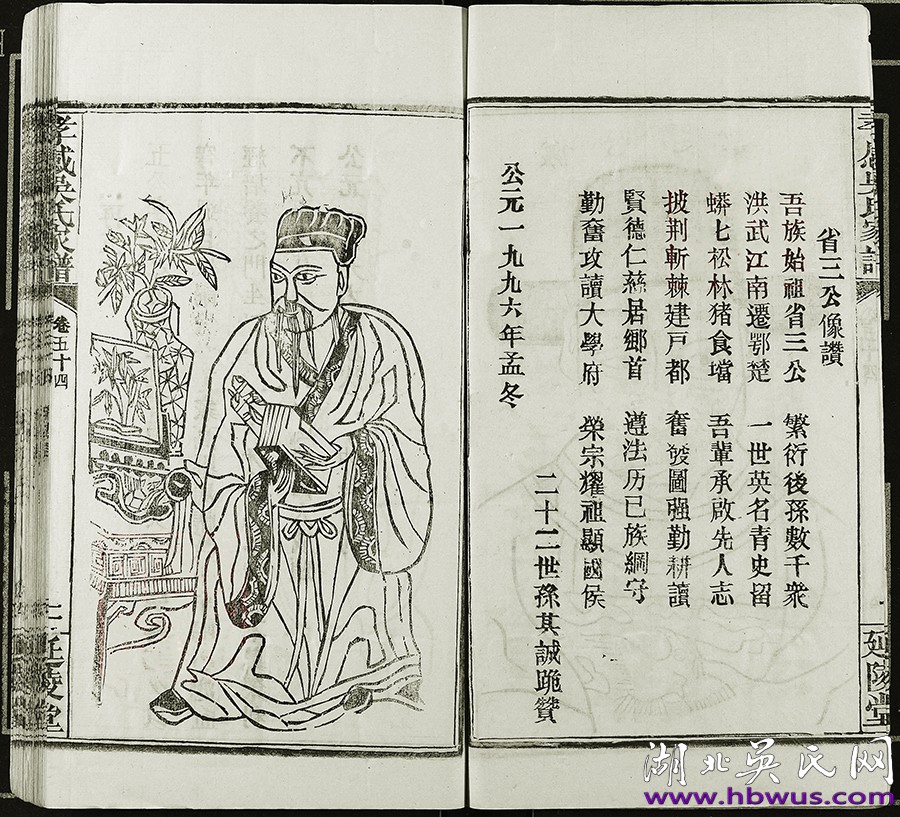 省三公像讚
吾族始祖省三公　繁衍後孫數千衆
洪武江南遷鄂楚　一世英名青史留
蟒七松林猪食壋　吾輩承啟先人志
披荆斬棘建戸都　奮發圖强勤耕讀
賢德仁慈居鄉首　遵法历已族綱守
勤奮攻讀大學府　榮宗耀祖顯國侯
二十二世孫其誠跪贊
公元一九九六年孟冬
延陵堂
孝感吳氏家譜
卷五十四
延陵堂
湖北吳氏网
www.hbwus.com